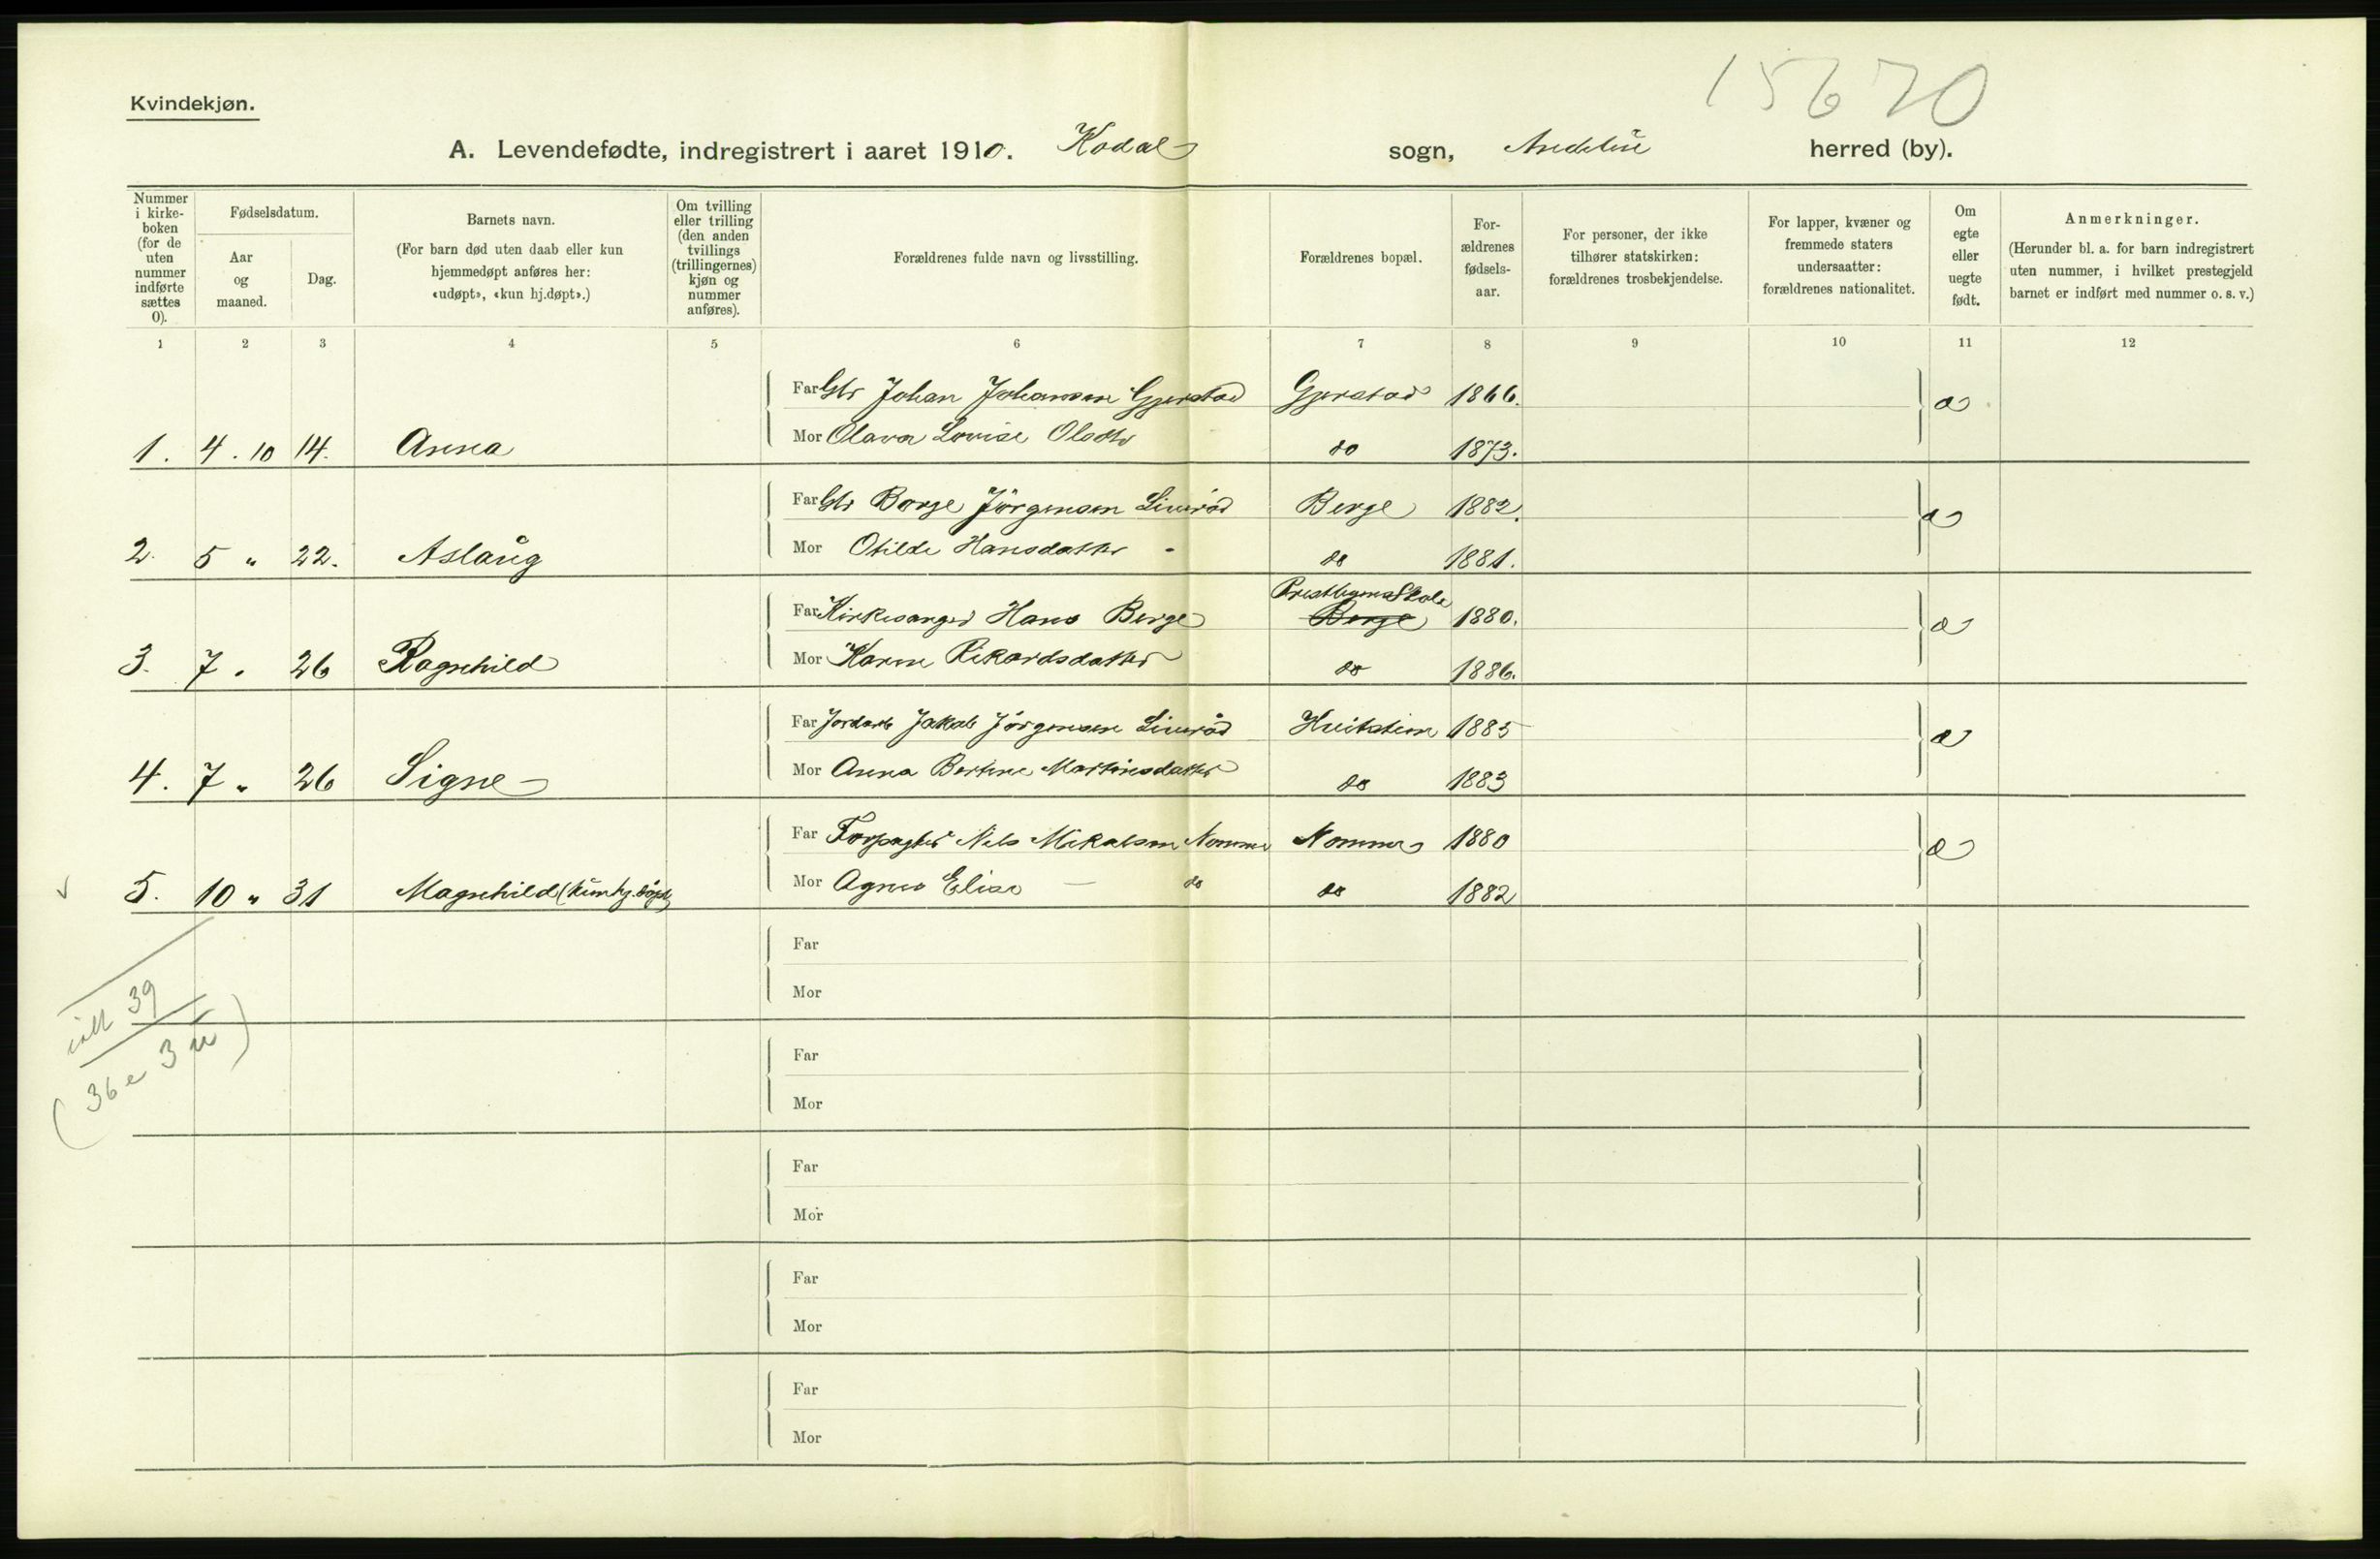 15670
Kvindekjøn.
A. Levendefødte, indregistrert i aaret 1910. Kodal sogn, Andebu herred (by).
Nummer i kirke-boken (for de uten nummer indførte sættes 0).
Fødselsdatum.
Aar og maaned.
Dag.
Barnets navn.
(For barn død uten daab eller kun hjemmedøpt anføres her: «udøpt», «kun hj.døpt».)
Om tvilling eller trilling (den anden tvillings (trillingernes) kjøn og nummer anføres).
Forældrenes fulde navn og livsstilling.
Forældrenes bopæl.
For-ældrenes fødsels-aar.
For personer, der ikke tilhører statskirken: forældrenes trosbekjendelse.
For lapper, kvæner og fremmede staters undersaatter: forældrenes nationalitet.
Om egte eller uegte født.
Anmerkninger.
(Herunder bl. a. for barn indregistrert uten nummer, i hvilket prestegjeld barnet er indført med nummer o. s. v.)
1 2 3 4 5 6 7 8 9 10 11 12
Far Gbr Johan Johansen Gjerstad Gjerstad 1866. e
1. 4. 10 14. Anna Mor Olava Lovise Olsdtr do 1873.
Far Gbr Borge Jörgensen Liverød Berge 1882. e
2. 5 " 22. Aslaug Mor Otilde Hansdatter - do 1881.
Prestbyens Skole
Far Kirkesanger Hans Berge Berge 1880. e
3. 7 . 26 Ragnhild Mor Karen Rikardsdatter do 1886.
Far Jordarb Jakob Jörgensen Liverød Hvitstein 1885 e
4. 7 " 26 Signe Mor Anna Bertine Martinsdatter do 1883
Far Forpagter Nils Mikalsen Nomme Nomme 1880 e
5. 10 " 31 Magnhild (kun hj. döpt) Mor Agnes Elise — do do 1882
ialt 39
(36 e 3 u)
Far
Mor
Far
Mor
Far
Mor
Far
Mor
Far
Mor